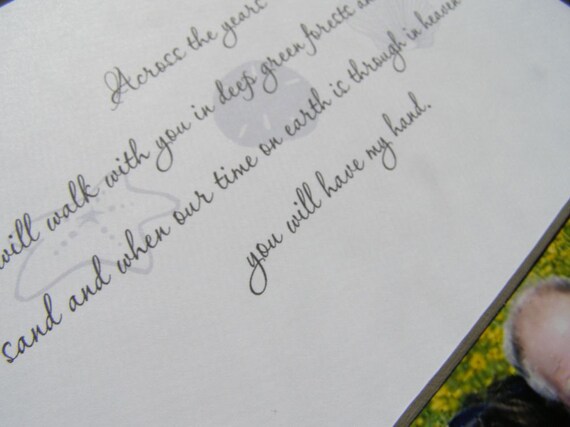 Across the years
will walk with you in deep green forests an
sand and when our time on earth is through in heaven
you will have my hand.